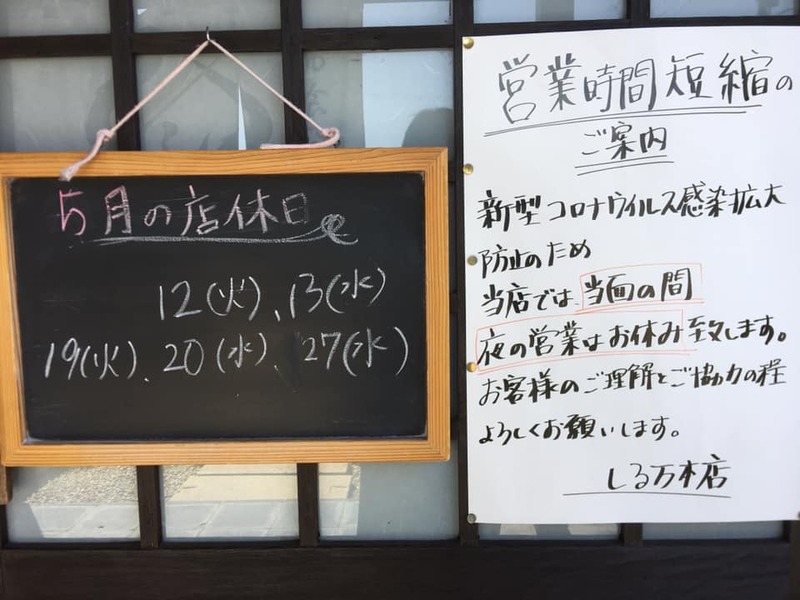 5月の店休日
12(火)、13(水)
19(火)、20(水)、27(水)
営業時間短縮の
ご案内
新型コロナウイルス感染拡大
防止のため
当店では、当面の間
夜の営業はお休み致します。
お客様のご理解とご協力の程
よろしくお願いします。
しる万本店